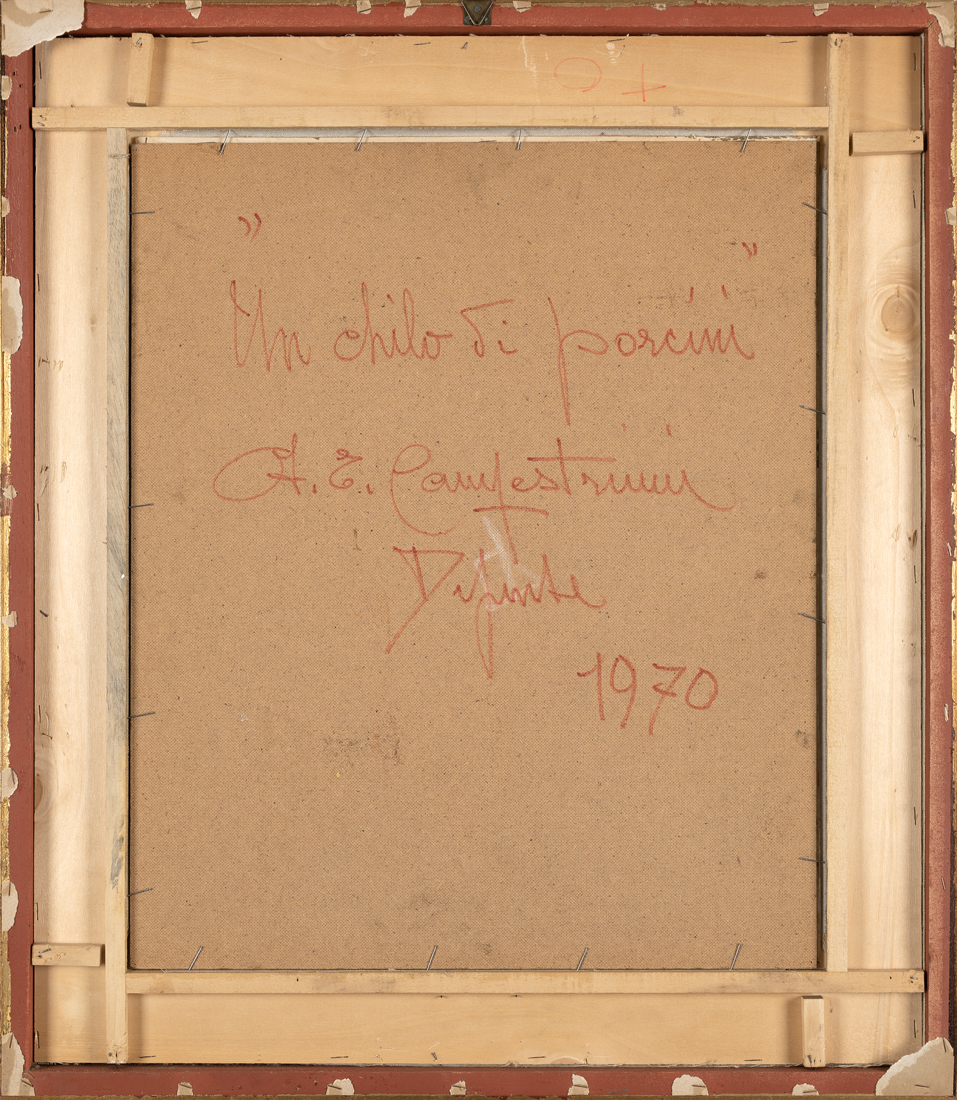 O +
"Un chilo di porcini"
A. E. Campestrini
Dipinse
1970